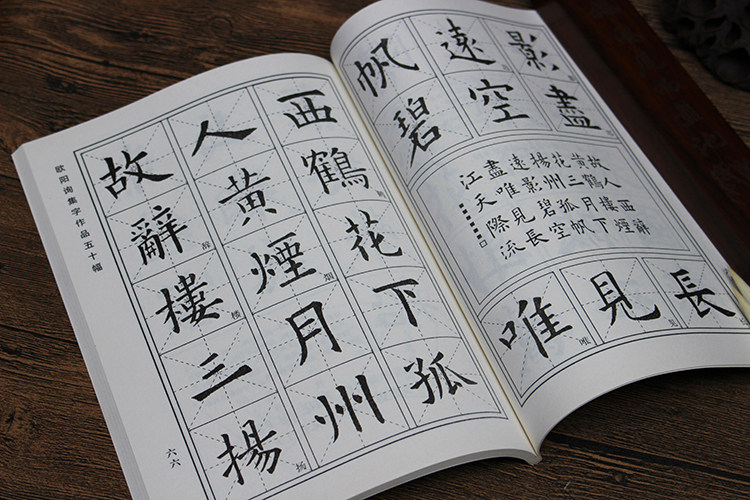 欧阳询集字作品五十幅
故人西
辭黃鶴
辞
樓煙花
楼
烟
三月下
揚州孤
扬
六六
帆遠影
碧空盡
故人西辭
黃鶴樓煙
花三月下
揚州孤帆
遠影碧空
盡唯見長
江天際流
唯見長
唯